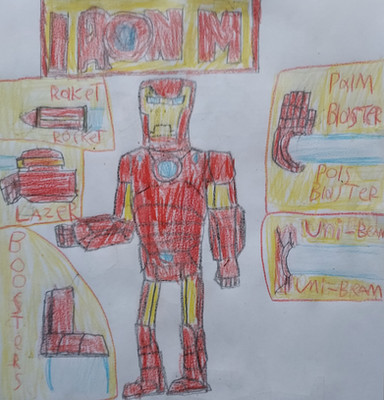 IRON M
RaKeT
ROCKET
LAZER
BOOSTERS
PalM
BlaSTER
BlaSTER
UNI-BEAM
UNI-BEAM